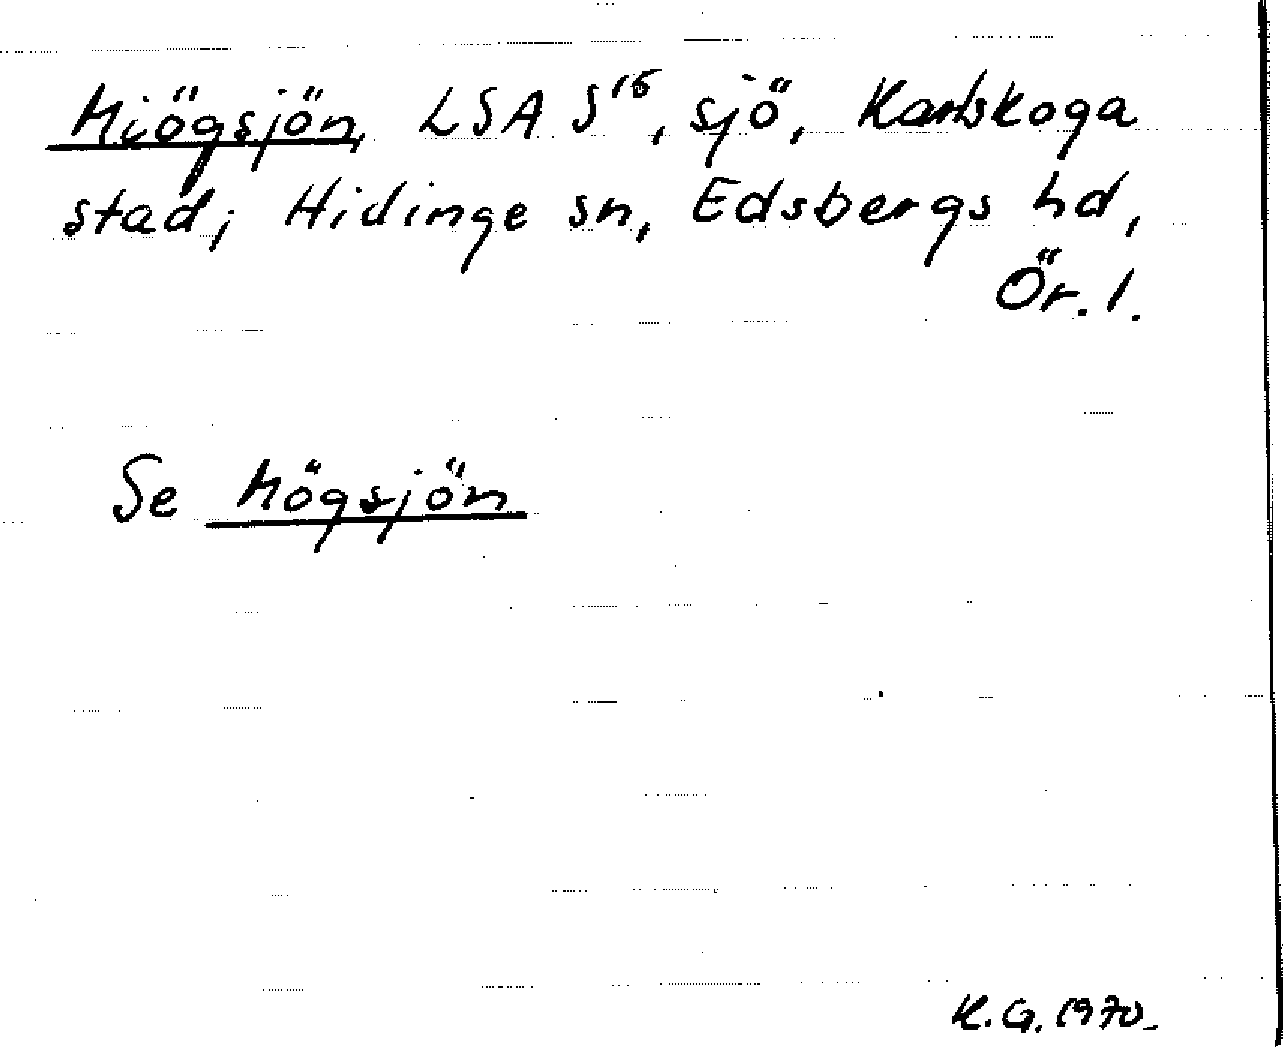 Miögsjön, LSA S¹⁶, sjö, Karlskoga
stad; Hidinge sn, Edsbergs hd,
Ör. l.
Se Mögsjön
K. G. 1970.